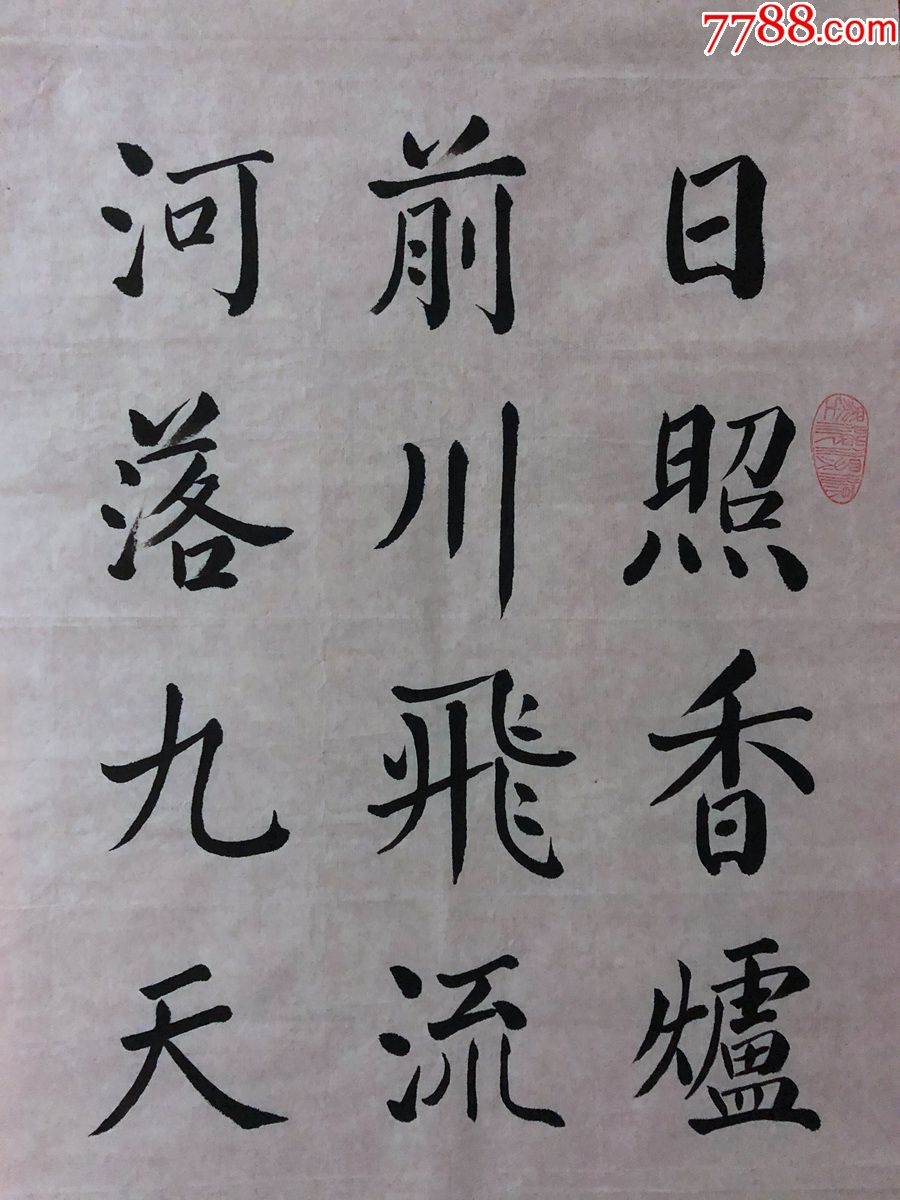 7788.com
日照香爐
前川飛流
河落九天